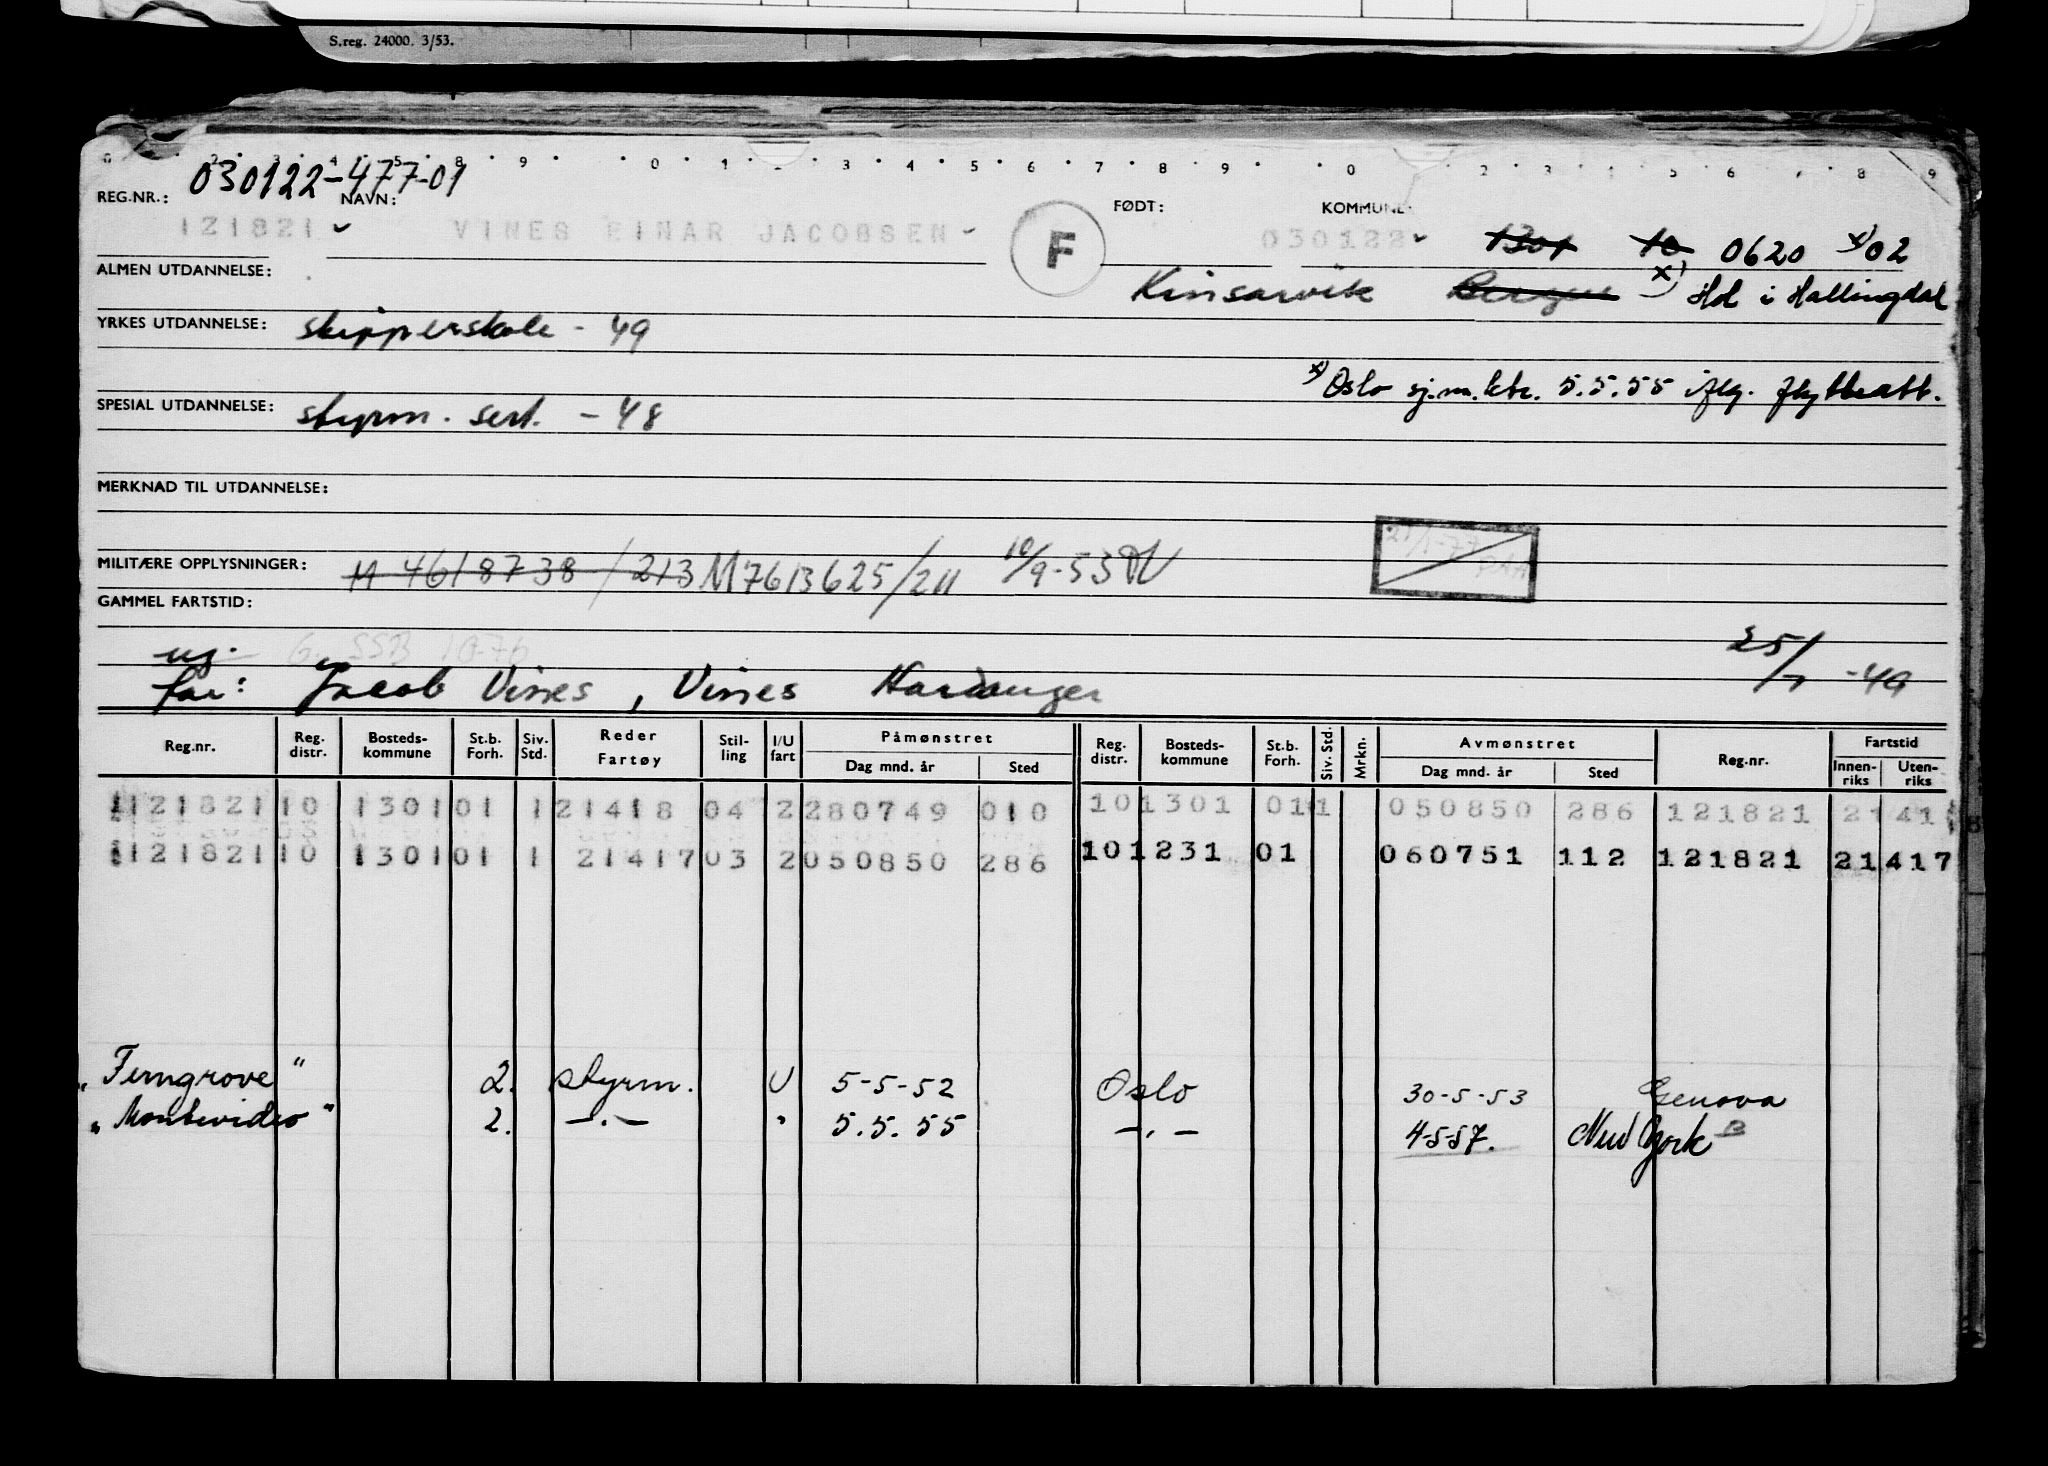 S.reg. 24000. 3/53.
030122-477-01
REG.NR.: NAVN: FØDT: KOMMUNE:
121821 VINES EINAR JACOBSEN F 030122 1301 10 0620 x) 02
ALMEN UTDANNELSE: Kinsarvik Bergen x) Hol i Hallingdal
YRKES UTDANNELSE: skipperskole - 49
x) Oslo sj.m.ktr. 5.5.55 iflg. flytteatt.
SPESIAL UTDANNELSE: styrm. sert. - 48
MERKNAD TIL UTDANNELSE:
MILITÆRE OPPLYSNINGER: M 4618738/213 M7613625/211 10/9-53
GAMMEL FARTSTID:
ug. G. SSB 10-76
far: Jacob Vines, Vines Hardanger 25/7 -49
Reg.nr. Reg. distr. Bosteds-kommune St.b. Forh. Siv. Std. Reder Fartøy Stil-ling I/U fart Påmønstret Dag mnd. år Sted Reg. distr. Bosteds-kommune St.b. Forh. Siv. Std. Mrkn. Avmønstret Dag mnd. år Sted Reg.nr. Fartstid Innen-riks Uten-riks
121821 10 1301 01 1 21418 04 2 280749 010 10 1301 01 1 050850 286 121821 21 41
121821 10 1301 01 1 21417 03 2 050850 286 10 1231 01 060751 112 121821 21 417
"Ferngrove" 2. styrm. U 5-5-52 Oslo 30-5-53 Genova
"Montevideo" 2. -.- " 5.5.55 -.- 4-5-57. New York B